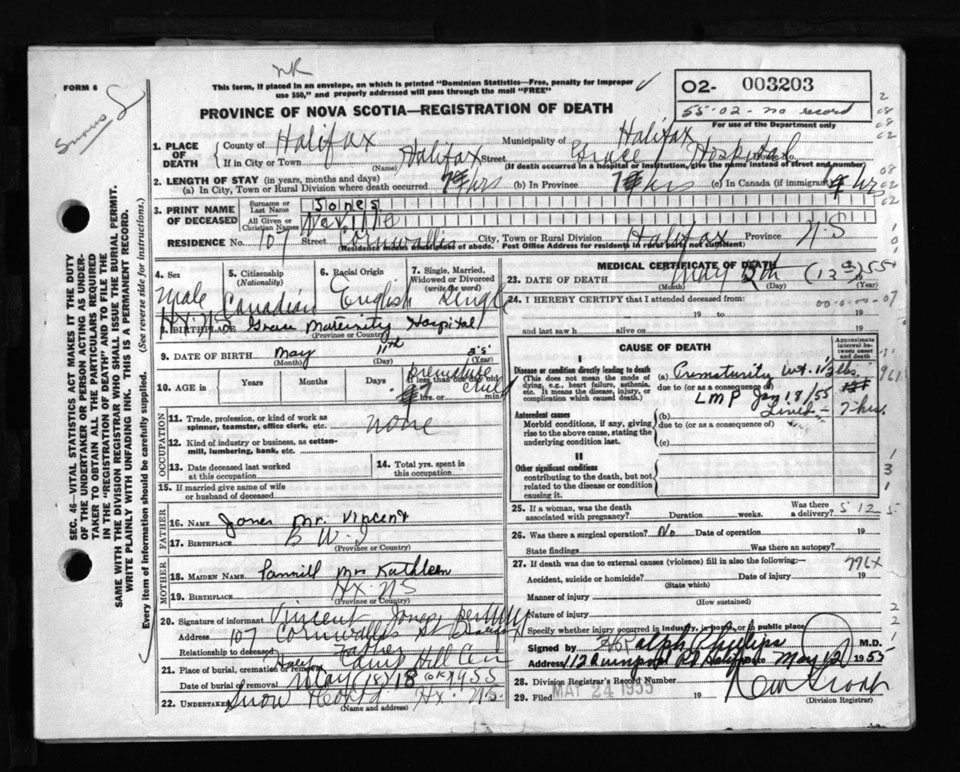 FORM 6
NR
This form, if placed in an envelope, on which is printed "Dominion Statistics—Free, penalty for improper
use $50," and properly addressed will pass through the mail "FREE"
PROVINCE OF NOVA SCOTIA—REGISTRATION OF DEATH
O2- 003203
55-02 - no record
For use of the Department only
1. PLACE OF DEATH
County of Halifax
Municipality of Halifax
If in City or Town Halifax Street Grace Hospital
(Name) (If death occurred in a hospital or institution, give the name instead of street and number)
2. LENGTH OF STAY (in years, months and days)
(a) In City, Town or Rural Division where death occurred 7 hrs (b) In Province 7 hrs (c) In Canada (if immigrant) hr
3. PRINT NAME OF DECEASED
Surname or Last Name Jones
All Given or Christian Names
RESIDENCE No. 107 Street Cornwallis City, Town or Rural Division Halifax Province N.S
(Residence means usual place of abode. Post Office Address for residents in rural parts not sufficient)
4. Sex Male
5. Citizenship (Nationality) Canadian
6. Racial Origin English
7. Single, Married, Widowed or Divorced (write the word) Single
8. BIRTHPLACE Grace Maternity Hospital
(Province or Country)
9. DATE OF BIRTH May 11th 55
(Month) (Day) (Year)
10. AGE in Years Months Days If less than one day old hrs. or min.
premature
OCCUPATION
11. Trade, profession, or kind of work as
spinner, teamster, office clerk, etc. none
12. Kind of industry or business, as cotton-
mill, lumbering, bank, etc.
13. Date deceased last worked
at this occupation
14. Total yrs. spent in
this occupation
15. If married give name of wife
or husband of deceased
FATHER
16. NAME Jones Mr. Vincent
17. BIRTHPLACE B W I
(Province or Country)
MOTHER
18. MAIDEN NAME Mrs Kathleen
19. BIRTHPLACE Hx. N.S
(Province or Country)
20. Signature of informant Vincent Jones
Address 107 Cornwallis St
Relationship to deceased Father
21. Place of burial, cremation or removal Halifax Camp Hill Cem
Date of burial or removal May (18) 18 (OK) 1955
22. UNDERTAKER Snow Hx. N.S.
(Name and address)
MEDICAL CERTIFICATE OF DEATH
23. DATE OF DEATH May 12th (12th) 55
(Month) (Day) (Year)
24. I HEREBY CERTIFY that I attended deceased from:
00-0-00-07
19 to 19
and last saw h alive on 19
CAUSE OF DEATH
Approximate interval between onset and death
I
Disease or condition directly leading to death
(This does not mean the mode of dying, e.g., heart failure, asthenia, etc. It means the disease, injury, or complication which caused death.)
(a) Prematurity wt. 1 1/2 lbs.
due to (or as a consequence of)
LMP Jan 18/55
Lived - 7 hrs.
Antecedent causes
Morbid conditions, if any, giving rise to the above cause, stating the underlying condition last.
(b)
due to (or as a consequence of)
(c)
II
Other significant conditions
contributing to the death, but not related to the disease or condition causing it.
25. If a woman, was the death
associated with pregnancy? Duration weeks. Was there a delivery?
5 12 5
26. Was there a surgical operation? No Date of operation 19
State findings Was there an autopsy?
27. If death was due to external causes (violence) fill in also the following:—
776X
Accident, suicide or homicide? Date of injury 19
(State which)
Manner of injury
(How sustained)
Nature of injury
Specify whether injury occurred in industry, in home, or in public place
Signed by Ralph Phillips M.D.
Address 112 Quinpool Rd Date May 12 1955
28. Division Registrar's Record Number
29. Filed MAY 24 1955 19
(Division Registrar)
SEC. 46—VITAL STATISTICS ACT MAKES IT THE DUTY
OF THE UNDERTAKER OR PERSON ACTING AS UNDER-
TAKER TO OBTAIN ALL THE PARTICULARS REQUIRED
IN THE "REGISTRATION OF DEATH" AND TO FILE THE
SAME WITH THE DIVISION REGISTRAR WHO SHALL ISSUE THE BURIAL PERMIT.
WRITE PLAINLY WITH UNFADING INK. THIS IS A PERMANENT RECORD.
Every item of information should be carefully supplied. (See reverse side for instructions.)